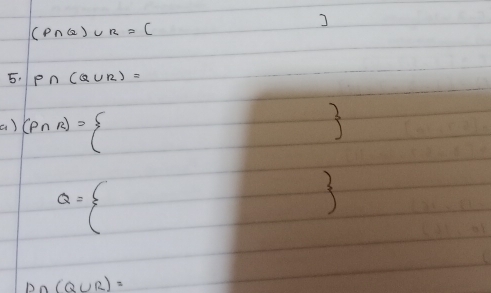 (P∩Q)∪R = [ ]
5. P∩(Q∪R) =
a) (P∩R) = { }
Q = { }
P∩(Q∪R) =